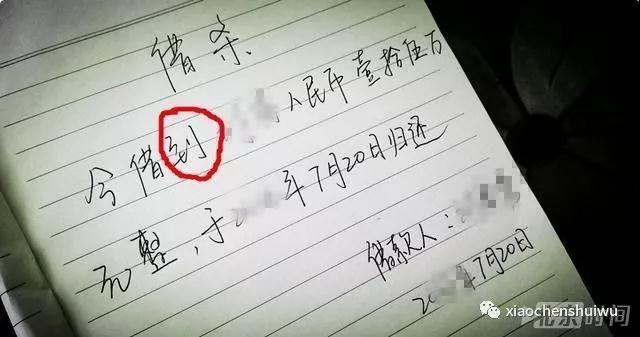 借条
今借到 人民币壹拾伍万
元整，于2 年7月20日归还
借款人：
20 年7月20日
xiaochenshuiwu
北京时间